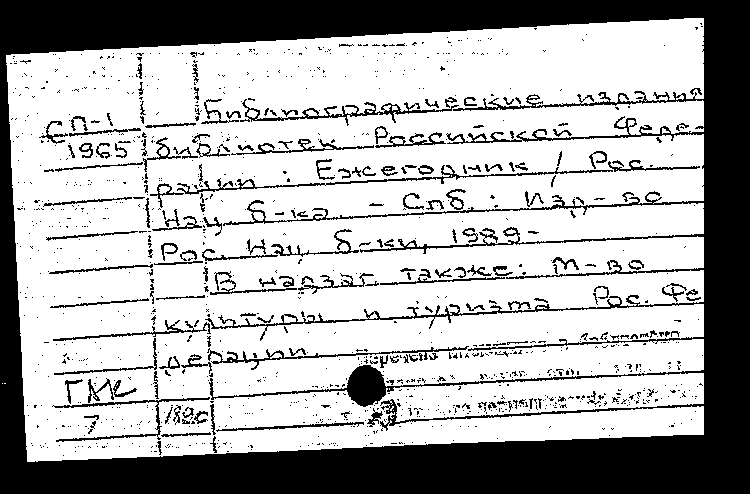 СП-1
1965
Библиографические издания
библиотек Российской Феде-
рации : Ежегодник / Рос.
Нац. б-ка. - Спб. : Изд-во
Рос. Нац. б-ки, 1989-
В надзаг. также: М-во
культуры и туризма Рос. Фе
дерации.
ГМК
7